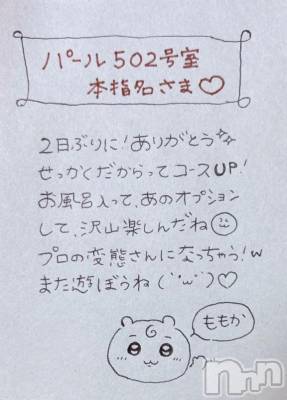 パール502号室
本指名さま♡
2日ぶりに！ありがとう✨
せっかくだからってコースUP！
お風呂入って、あのオプション
して、沢山楽しんだね☺
プロの変態さんになっちゃう！w
また遊ぼうね(´˙ω˙`)♡
ももか
nnn